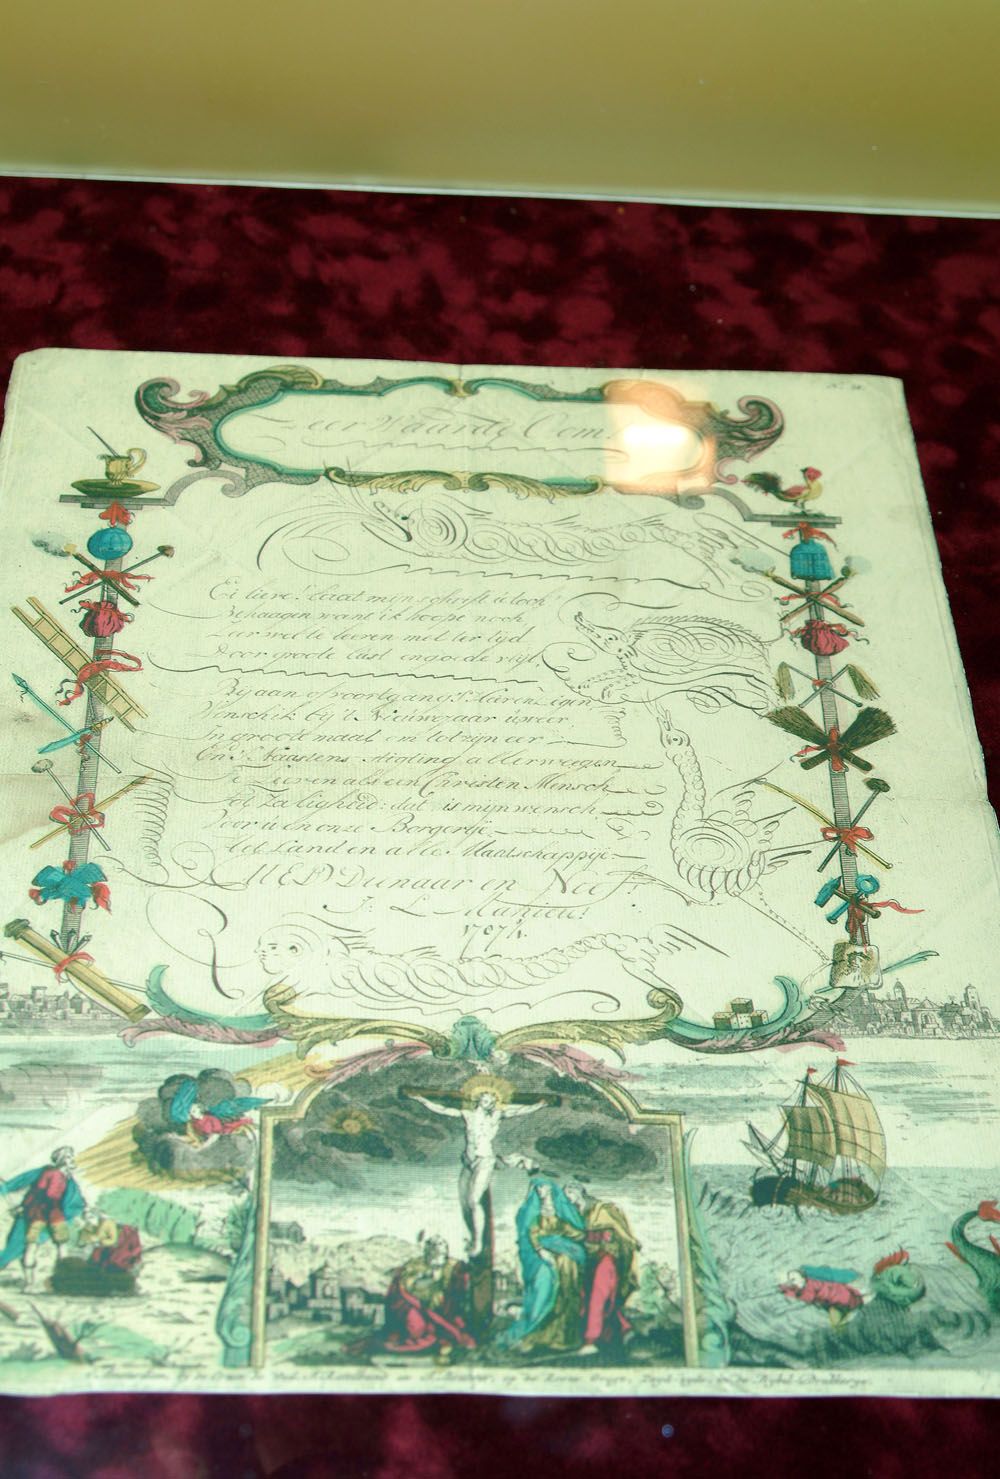 Zeer Waarde Oom!
Ei lieve! laat mijn schrift u toch
Behaagen want ik hoope nooh
Zeer wel te leeren met ter tijd
Door groote lust en goede vlijt,
Bij aan of voortgang 's Heren Zegen
Wensch ik bij 't Nieuwe jaar u weer
In groote maat om tot zijn eer
En 's Naastens stigting allerweegen
Te Leeven als een Christen Mensch
Tot Zaligheid: dit is mijn wensch
Voor u en onze Borgerije
Het Land en alle Maatschappije
UED Dienaar en Neef
J: L Mahieu!
1797
Amsterdam, by de Erven de Wed.